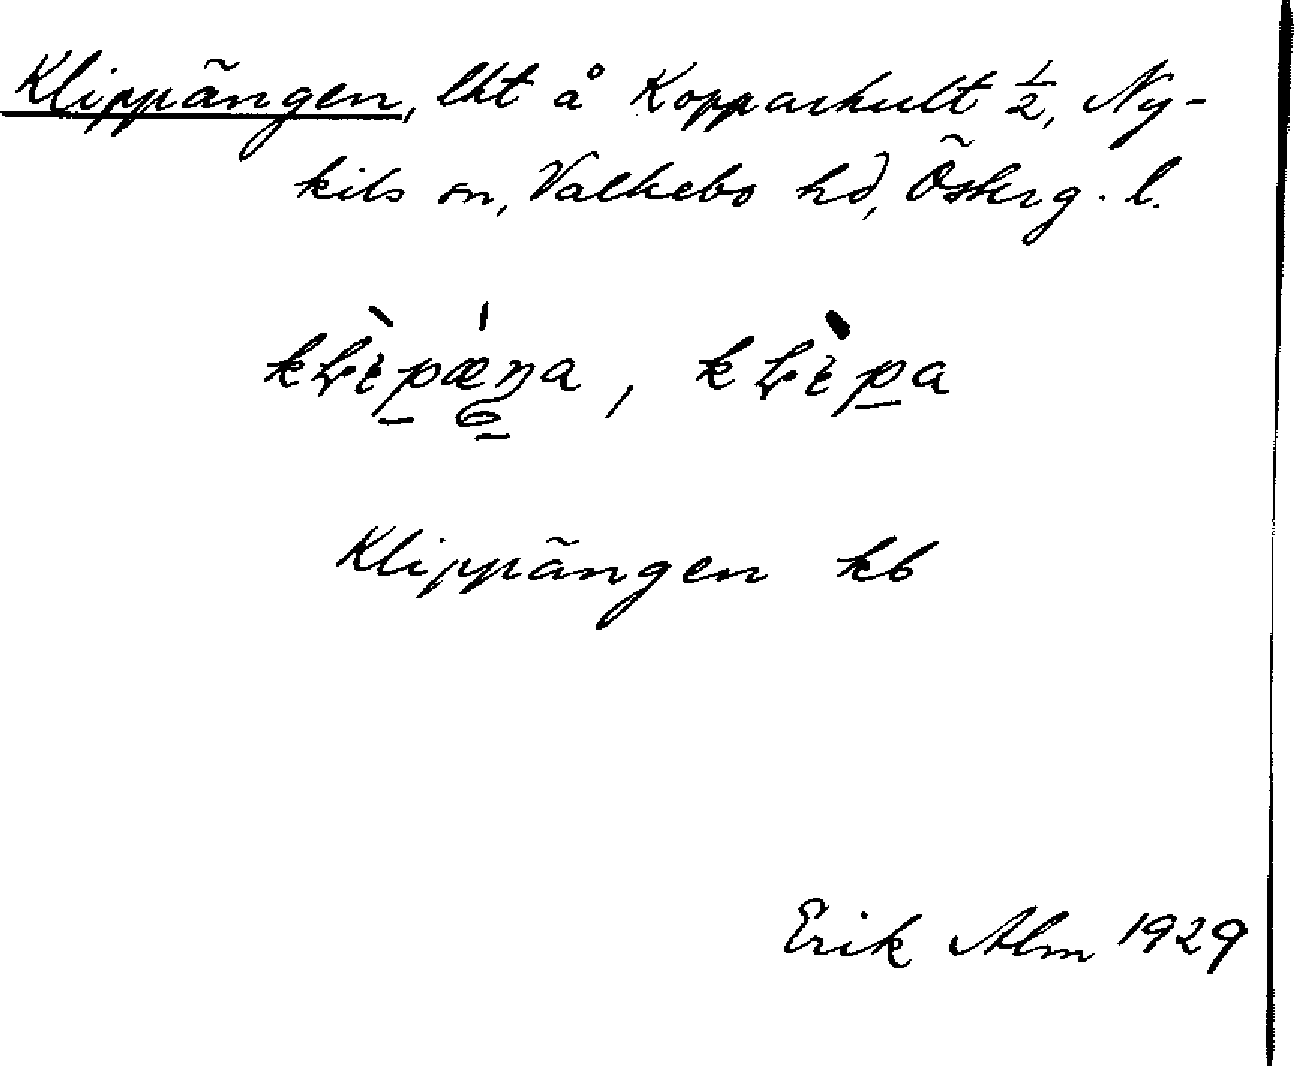 Klippängen, lht å Kopparhult ½, Ny-
kils sn, Valkebo hd, Österg. l.
Klippängen kb
Erik Alm 1929